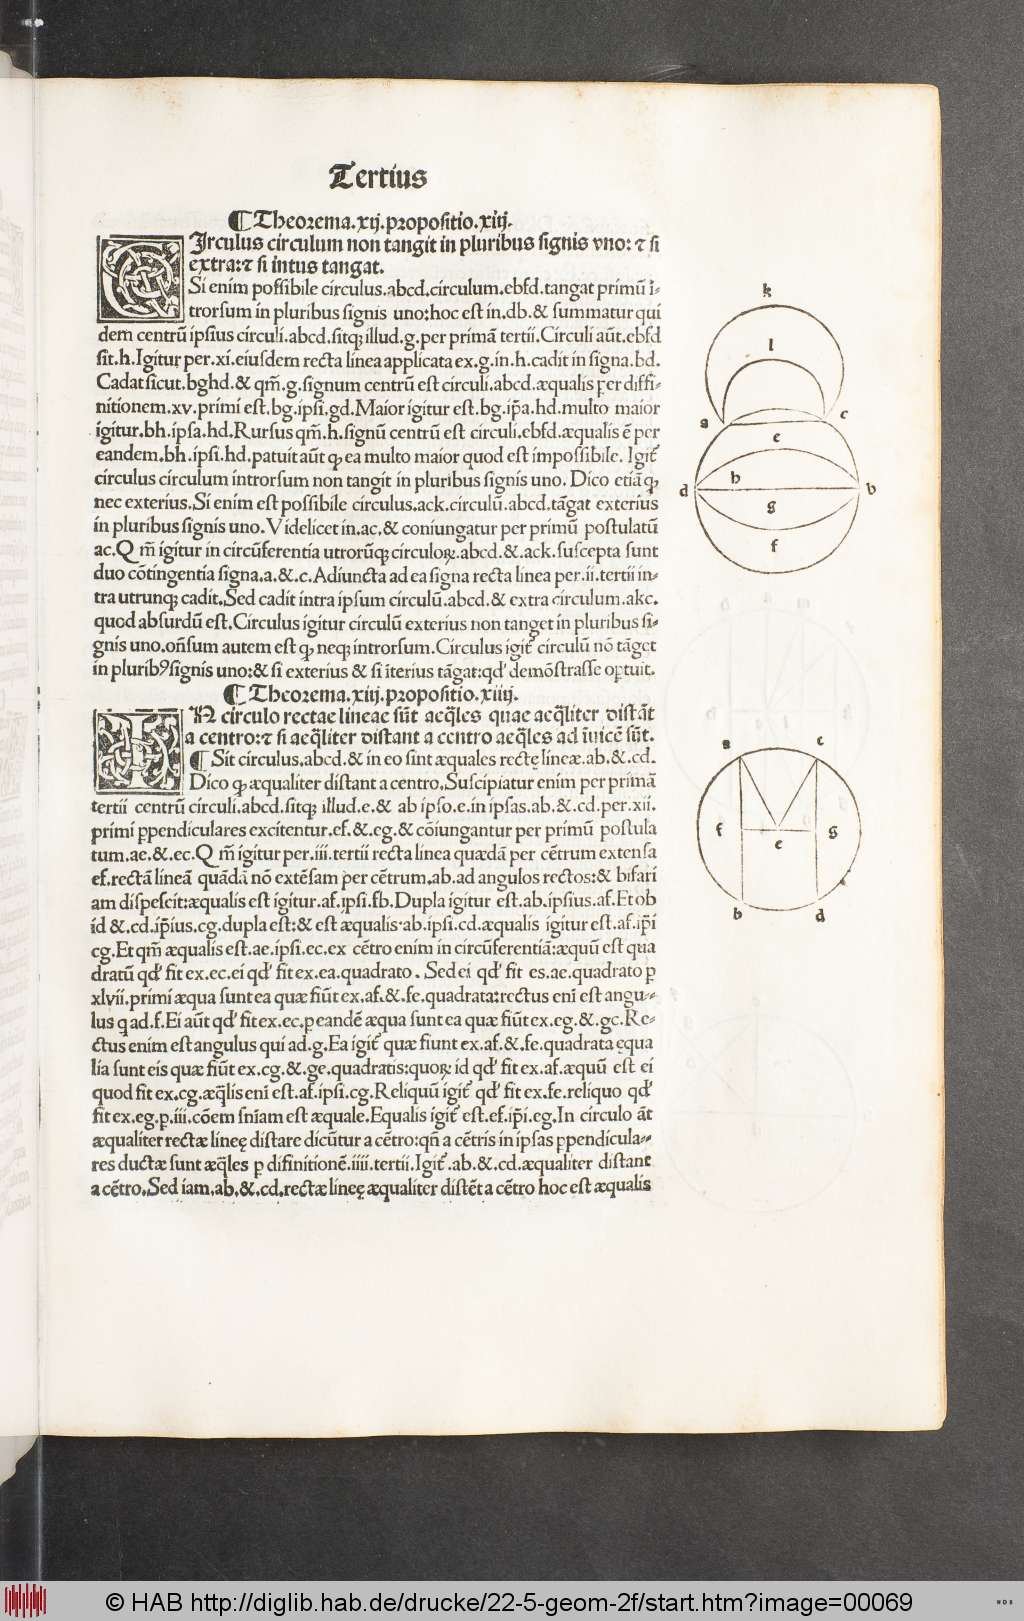 Tertius
¶Theorema.xij.propositio.xiij.
CIrculus circulum non tangit in pluribus signis vno: ⁊ si
extra:⁊ si intus tangat.
Si enim possibile circulus.abcd.circulum.ebfd.tangat primũ ĩ-
trorsum in pluribus signis uno:hoc est in.db.& summatur qui
dem centrũ ipsius circuli.abcd.sitq; illud.g.per primã tertii.Circuli aũt.ebfd
sit.h.Igitur per.xi.eiusdem recta linea applicata ex.g.in.h.cadit in signa.bd.
Cadat sicut.bghd.& qm̃.g.signum centrũ est circuli.abcd.æqualis per diffi-
nitionem.xv.primi est.bg.ipsi.gd.Maior igitur est.bg.ip̃a.hd.multo maior
igitur.bh.ipsa.hd.Rursus qm̃.h.signũ centrũ est circuli.ebfd.æqualis ẽ per
eandem.bh.ipsi.hd.patuit aũt ꝙ ea multo maior quod est impossibile. Igit᷑
circulus circulum introrsum non tangit in pluribus signis uno. Dico etiã ꝙ
nec exterius.Si enim est possibile circulus.ack.circulũ.abcd.tãgat exterius
in pluribus signis uno.Videlicet in.ac.& coniungatur per primũ postulatũ
ac.Qm̃ igitur in circũferentia utrorũq; circuloꝝ.abcd.&.ack.suscepta sunt
duo cõtingentia signa.a.&.c.Adiuncta ad ea signa recta linea per.ii.tertii in-
tra utrunq; cadit.Sed cadit intra ipsum circulũ.abcd.& extra circulum.akc.
quod absurdũ est.Circulus igitur circulũ exterius non tanget in pluribus si-
gnis uno.oñsum autem est ꝙ neq; introrsum.Circulus igit᷑ circulũ nõ tãget
in pluribꝰ signis uno:& si exterius & si ĩterius tãgat:qd' demõstrasse oꝑtuit.
¶Theorema.xiij.propositio.xiiij.
IN circulo rectae lineae sũt aeq̃les quae aeq̃liter distãt
a centro:⁊ si aeq̃liter distant a centro aeq̃les ad ĩuicẽ sũt.
¶Sit circulus.abcd.& in eo sint æquales rectę lineæ.ab.&.cd.
Dico ꝙ æqualiter distant a centro.Suscipiatur enim per primã
tertii centrũ circuli.abcd.sitq; illud.e.& ab ipso.e.in ipsas.ab.&.cd.per.xii.
primi ꝑpendiculares excitentur.ef.&.eg.& cõiungantur per primũ postula
tum.ae.&.ec.Qm̃ igitur per.iii.tertii recta linea quædã per cẽtrum extensa
ef.rectã lineã quãdã nõ extẽsam per cẽtrum.ab.ad angulos rectos:& bifari
am dispescit:æqualis est igitur.af.ipsi.fb.Dupla igitur est.ab.ipsius.af.Et ob
id &.cd.ip̃ius.cg.dupla est:& est æqualis.ab.ipsi.cd.æqualis igitur est.af.ip̃i
cg.Et qm̃ æqualis est.ae.ipsi.ec.ex cẽtro enim in circũferentiã:æquũ est qua
dratũ qd' fit ex.ec.ei qd' fit ex.ea.quadrato. Sed ei qd' fit es.ae.quadrato ꝑ
xlvii.primi æqua sunt ea quæ fiũt ex.af.&.fe.quadrata:rectus eni est angu-
lus q ad.f.Ei aũt qd' fit ex.ec.ꝑ eandẽ æqua sunt ea quæ fiũt ex.eg.&.gc.Re-
ctus enim est angulus qui ad.g.Ea igit᷑ quæ fiunt ex.af.&.fe.quadrata ęqua
lia sunt eis quæ fiũt ex.cg.&.ge.quadratis:quoꝝ id qd' fit ex.af.æquũ est ei
quod fit ex.cg.æq̃lis eni est.af.ipsi.cg.Reliquũ igit᷑ qd' fit ex.fe.reliquo qd'
fit ex.eg.ꝑ.iii.cõem sñiam est æquale.Equalis igit᷑ est.ef.ip̃i.eg.In circulo ãt
æqualiter rectæ lineę distare dicũtur a cẽtro:qñ a cẽtris in ipsas ꝑpendicula-
res ductæ sunt æq̃les ꝑ difinitionẽ.iiii.tertii.Igit᷑.ab.&.cd.æqualiter distant
a cẽtro.Sed iam.ab.&.cd.rectæ lineę æqualiter distẽt a cẽtro hoc est æqualis
k
l
a
c
e
h
d
b
g
f
a
c
f
g
e
b
d
© HAB http://diglib.hab.de/drucke/22-5-geom-2f/start.htm?image=00069